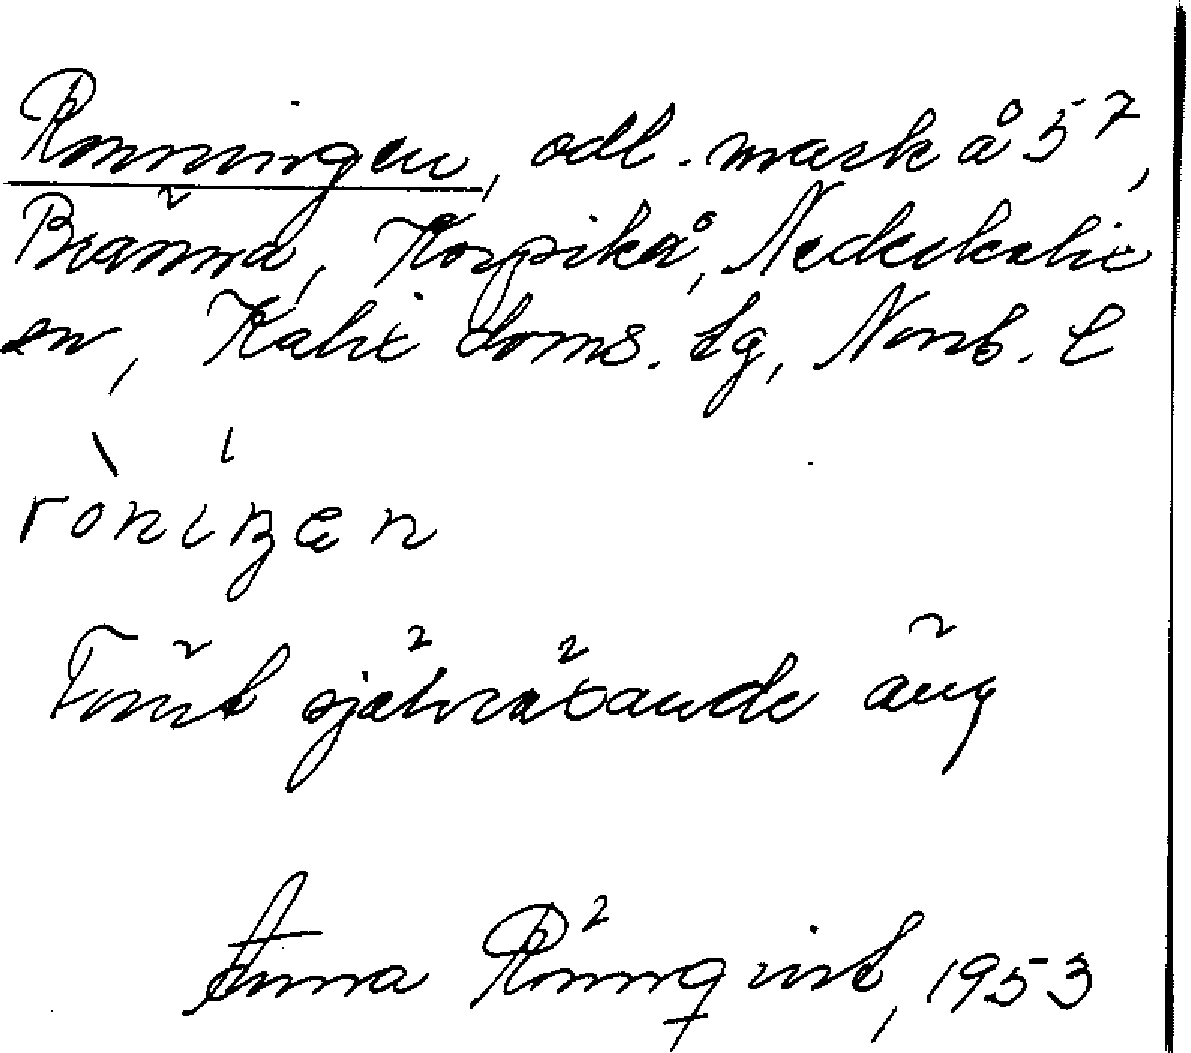 Rönningen, odl. mark å 5⁷,
Bränna, Korpikå, Nederkalix
en, Kalix doms. lg, Norrb. L
rön̄iŋen
Förut självväxande äng
Anna Rönnqvist, 1953